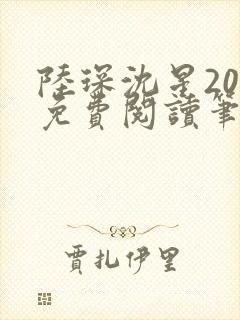 陸琛沈星20
免費閱讀筆
賈扎伊里